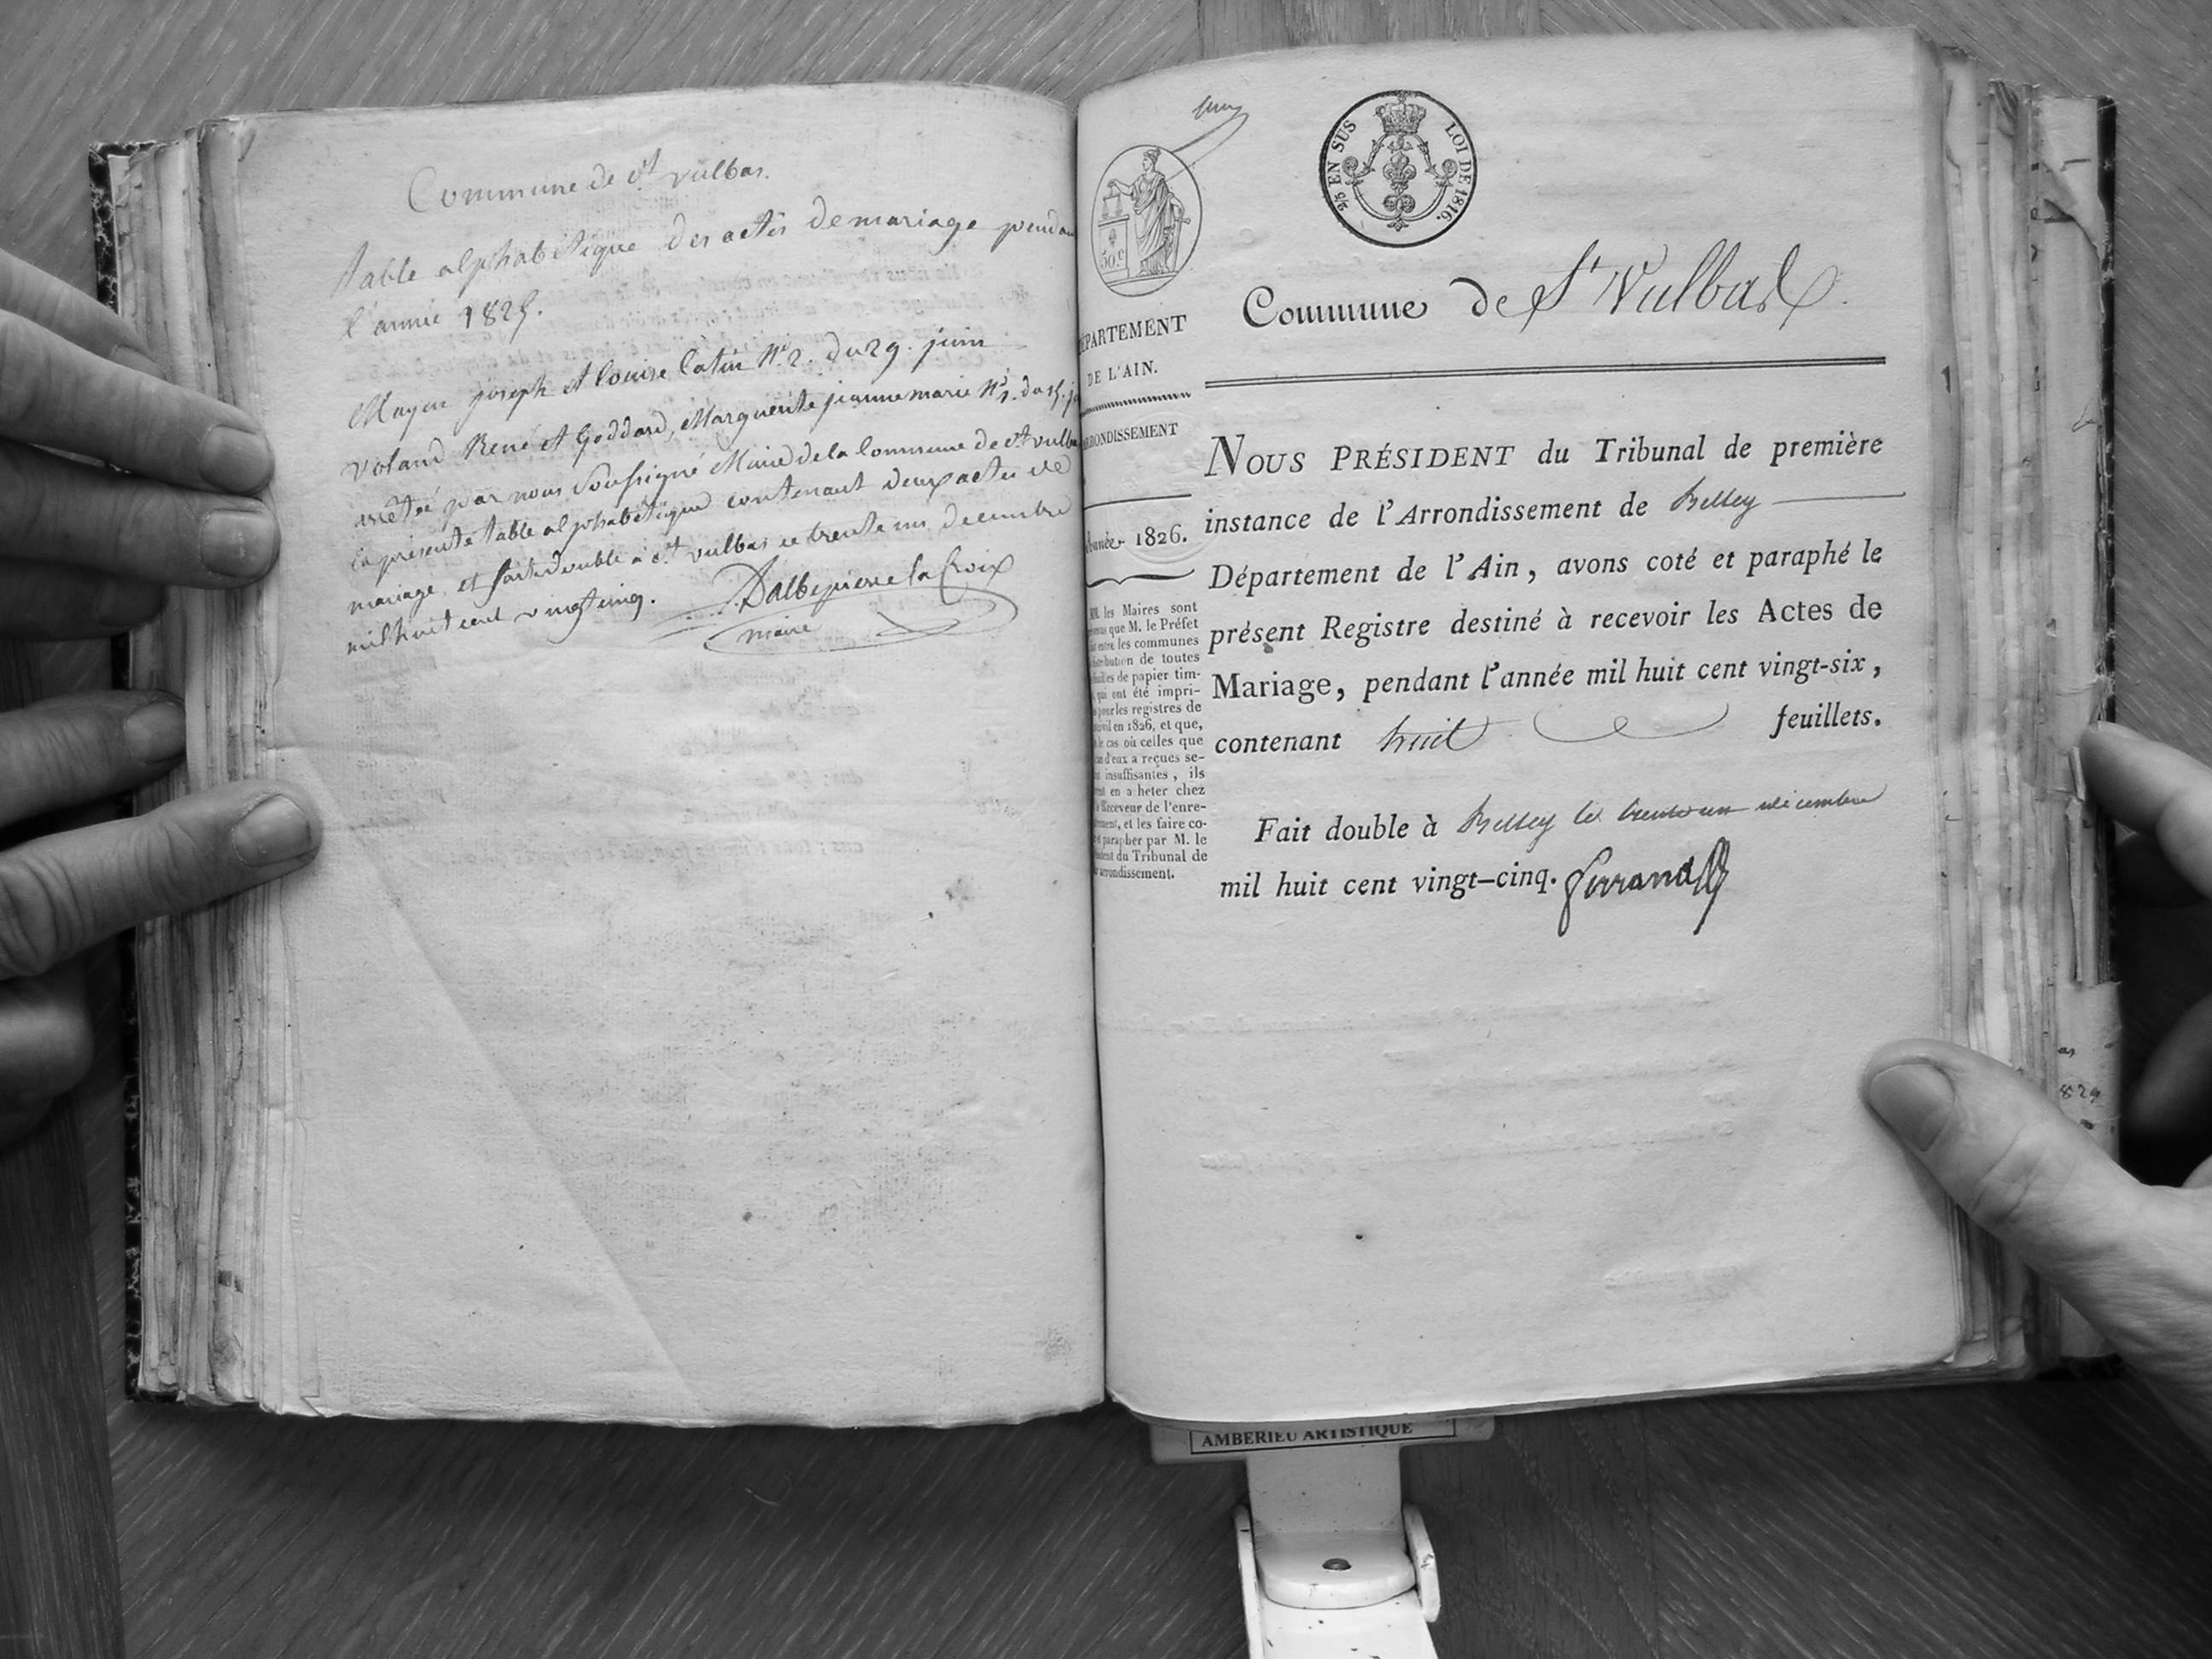 Commune de St vulbas.
table alphabetique des actes de mariage pendan
l'année 1825.
Mayen joseph et Louise Catin No 2. du 29. juin
Voland René et Goddard, Marguerite jeanne marie No 1. du 15. j
arrêtée par nous Soussigné Maire de la Commune de St vulba
la présente table alphabetique contenant deux actes de
mariage, et faite double à St vulbas ce trente un decembre
mil huit cent vingt cinq. Dalbepierre la Croix
maire
2/5 EN SUS LOI DE 1816.
50.c
Commune de St Vulbas
ÉPARTEMENT
DE L'AIN.
RRONDISSEMENT
Année 1826.
MM. les Maires sont
que M. le Préfet
entre les communes
distribution de toutes
feuilles de papier tim-
qui ont été impri-
pour les registres de
civil en 1826, et que,
le cas où celles que
d'eux a reçues se-
insuffisantes, ils
en a heter chez
Receveur de l'enre-
et les faire co-
parapher par M. le
du Tribunal de
arrondissement.
NOUS PRÉSIDENT du Tribunal de première
instance de l'Arrondissement de Belley
Département de l'Ain, avons coté et paraphé le
présent Registre destiné à recevoir les Actes de
Mariage, pendant l'année mil huit cent vingt-six,
contenant huit feuillets.
Fait double à Belley le trente un décembre
mil huit cent vingt-cinq. Ferrand
829
AMBERIEU ARTISTIQUE